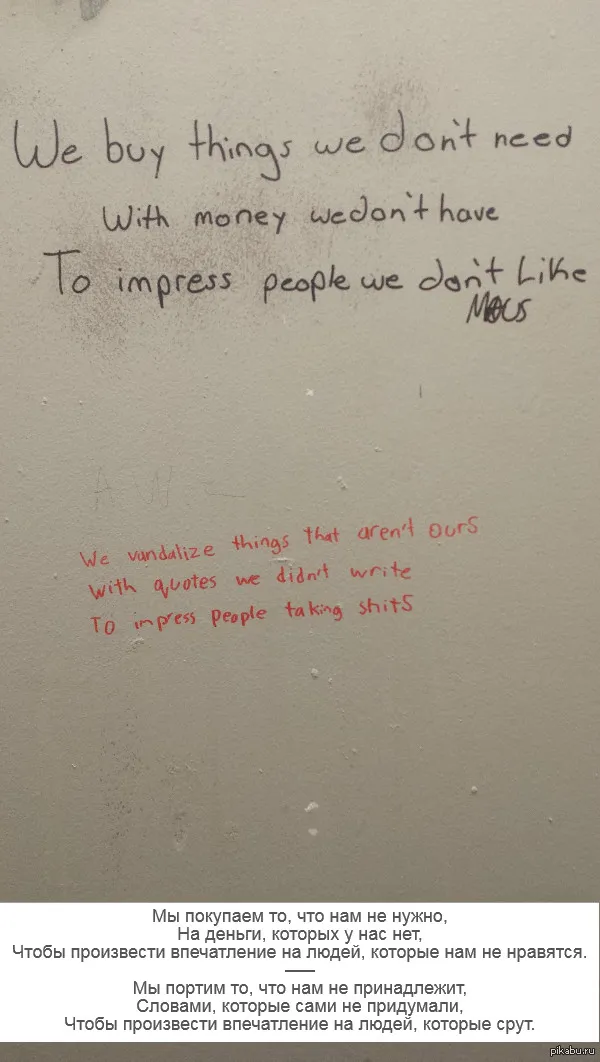 We buy things we don't need
With money we don't have
To impress people we don't Like
We vandalize things that aren't ours
with quotes we didn't write
To impress people taking shits
Мы покупаем то, что нам не нужно,
На деньги, которых у нас нет,
Чтобы произвести впечатление на людей, которые нам не нравятся.
Мы портим то, что нам не принадлежит,
Словами, которые сами не придумали,
Чтобы произвести впечатление на людей, которые срут.
pikabu.ru